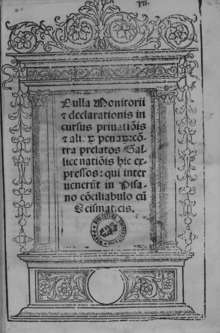 Bulla Monitorii
⁊ declarationis in
cursus priuatiõis
⁊ ali. ⁊ penarũ: cõ
tra prelatos Gal/
lice natiõis hic ex
pressos: qui inter
uenerũt in Pisa/
no cõciliabulo cũ
Scismaticis.